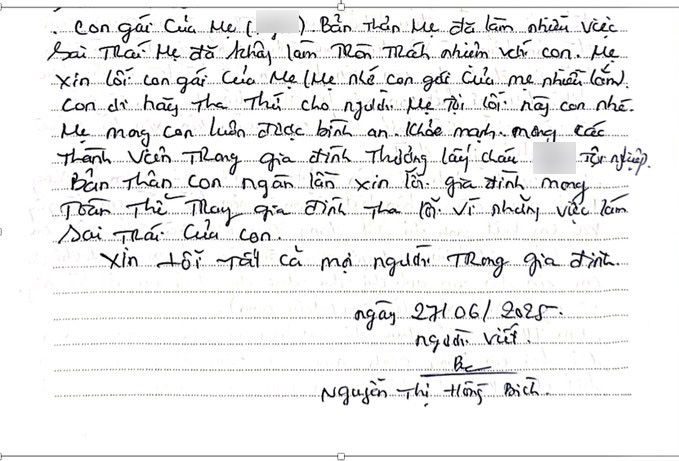 Con gái Của Mẹ ( ). Bản Thân Mẹ đã làm nhiều việc
Sai Trái Mẹ đã không làm Tròn Trách nhiệm với con. Mẹ
xin lỗi con gái Của Mẹ (Mẹ nhớ con gái Của mẹ nhiều lắm).
Con ơi hãy Tha Thứ cho người Mẹ Tội lỗi này con nhé.
Mẹ mong con luôn được bình an. Khỏe mạnh. mong các
Thành Viên Trong gia đình Thương lấy cháu Tội nghiệp.
Bản Thân Con ngàn lần xin lỗi gia đình mong
Toàn Thể gia đình tha lỗi vì những việc làm
Sai Trái Của Con.
Xin lỗi Tất cả mọi người Trong gia đình.
ngày 27/06/2025.
người viết.
Nguyễn Thị Hồng Bích.